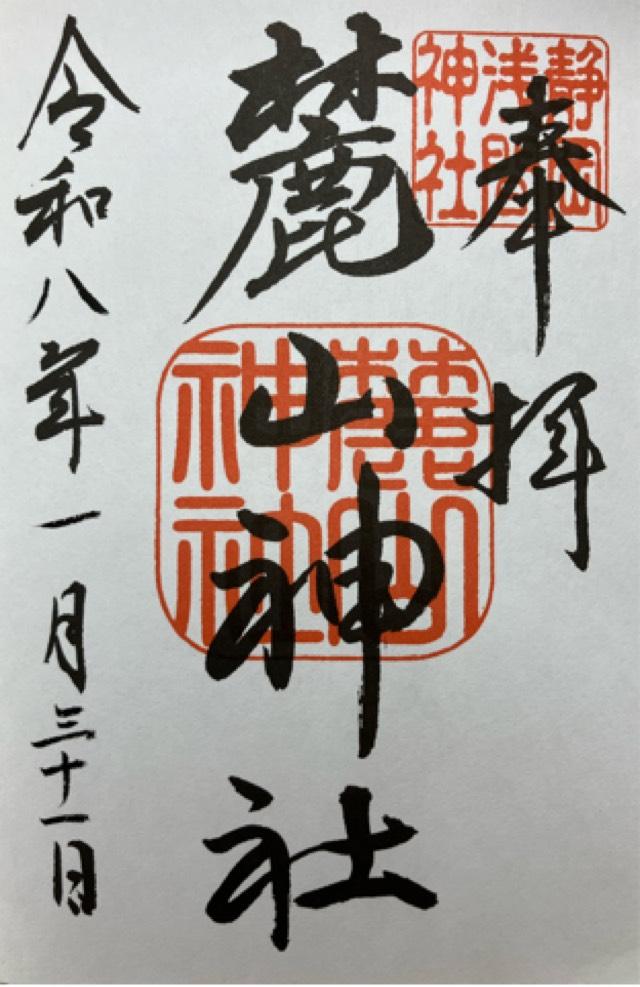 奉拝
静岡
浅間
神社
麓山神社
麓山
神社
令和八年一月三十一日